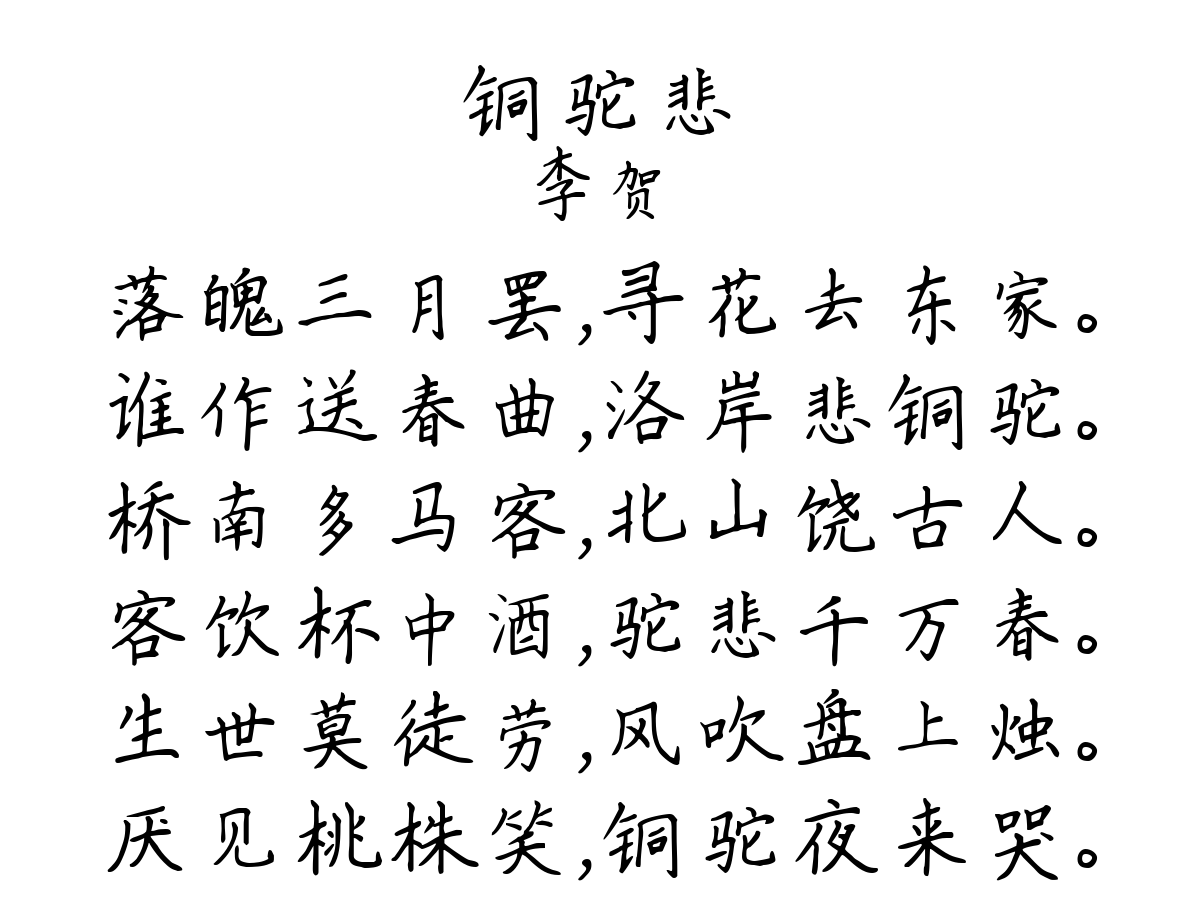 铜驼悲
李贺
落魄三月罢,寻花去东家。
谁作送春曲,洛岸悲铜驼。
桥南多马客,北山饶古人。
客饮杯中酒,驼悲千万春。
生世莫徒劳,风吹盘上烛。
厌见桃株笑,铜驼夜来哭。